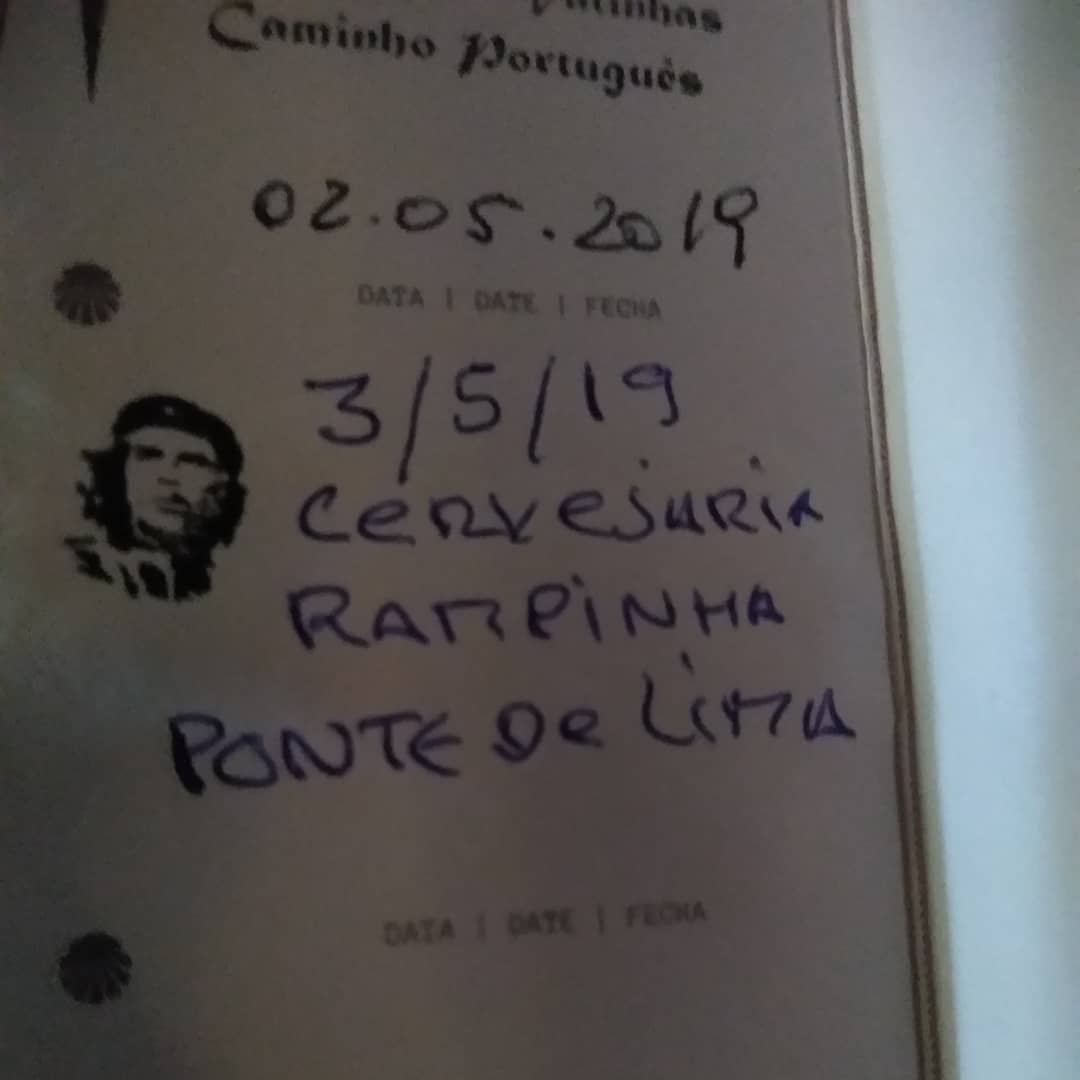 Caminho Português
02.05.2019
DATA | DATE | FECHA
3/5/19
CERVEJARIA
RAMPINHA
PONTE De LIMA
DATA | DATE | FECHA